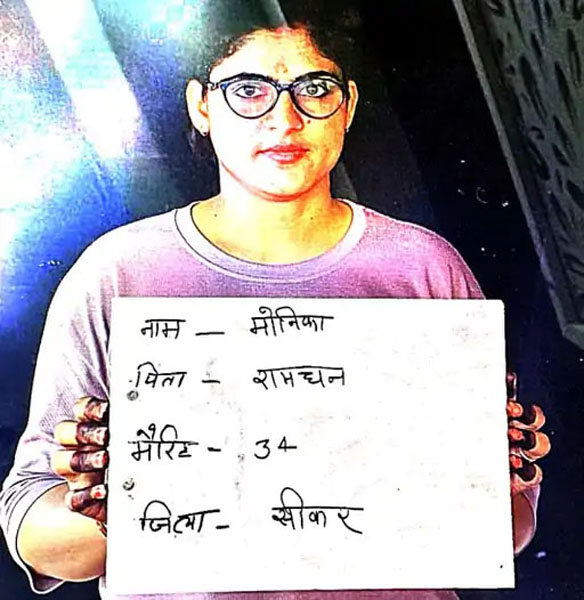 नाम – मोनिका
पिता – रामधन
मैरिट - 34
जिला - सीकर